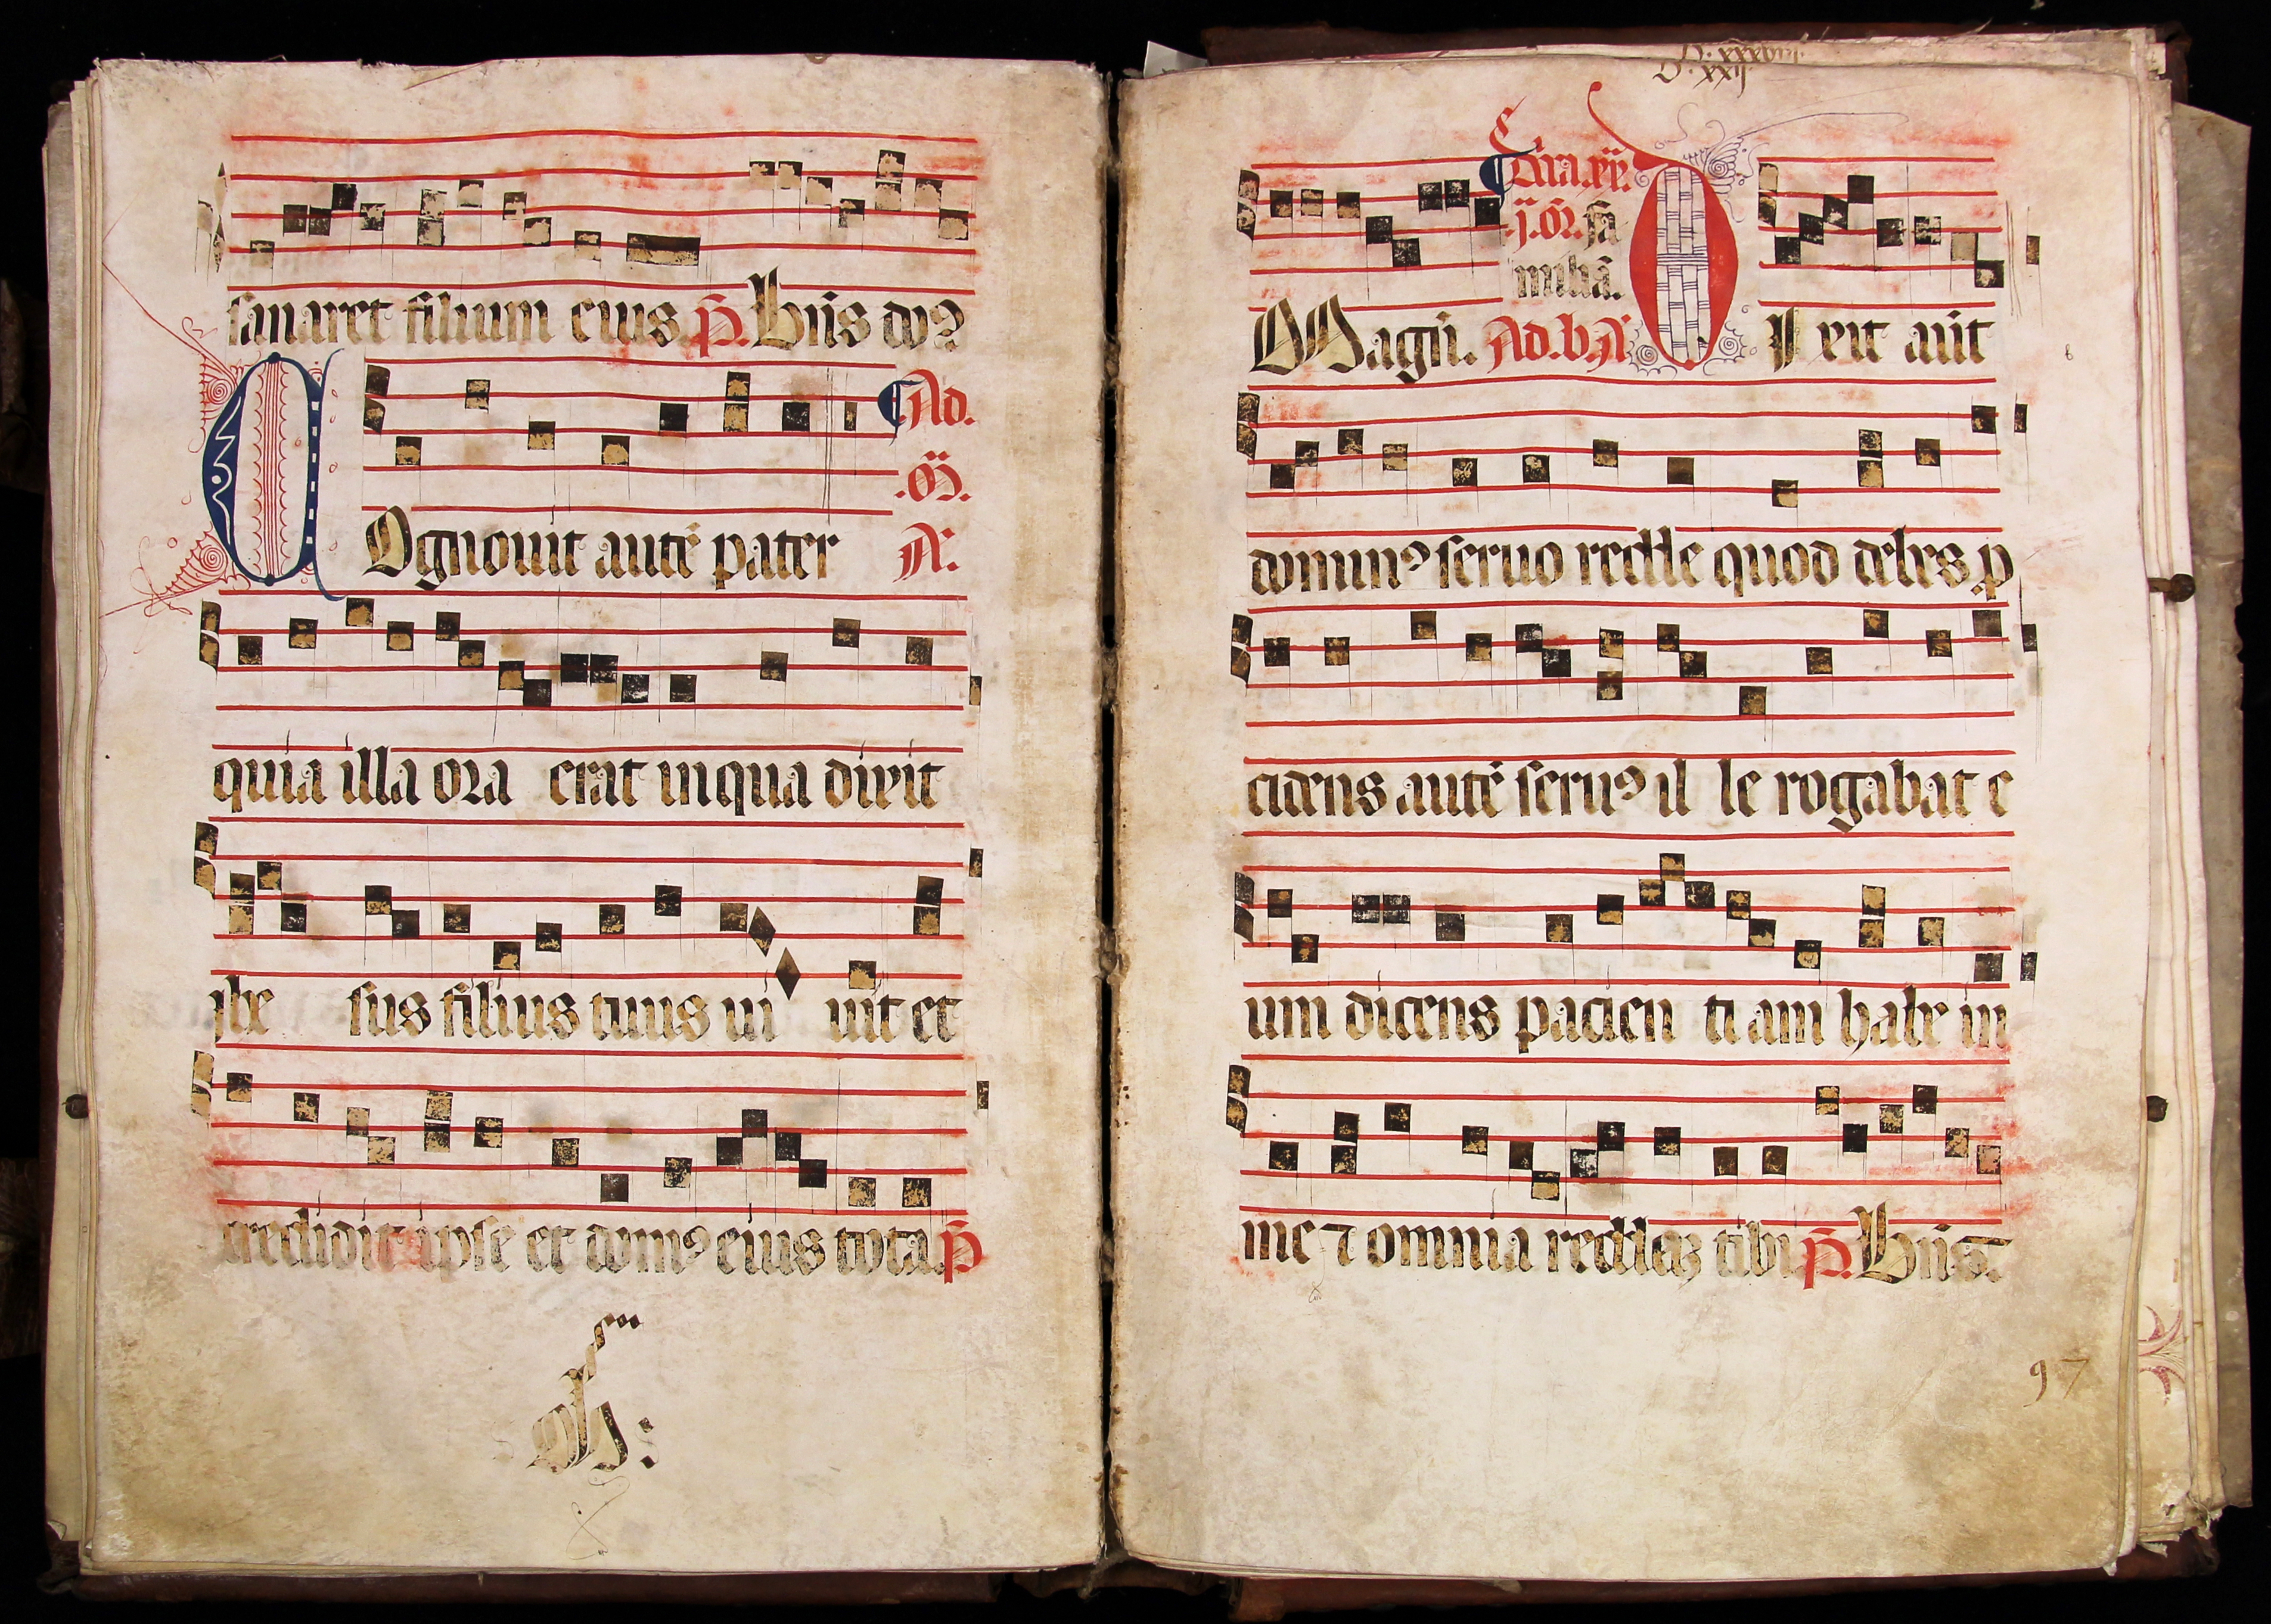 sanaret filium eius. p̄. Bn̄s do9
Ad.
.M̄.
COgnouit autē pater A.
quia illa ora erat in qua dixit
ihe sus filius tuus ui uit et
credidit ipse et dom9 eius tota. p̄
D. xxxviii.
D. xxij
Dn̄ica. xx.
.ij. Or̄. fa
miliā.
Magn̄. Ad. b. A. DIxit aūt
domin9 seruo redde quod debes. p
cidens autē seru9 il le rogabat e
um dicens pacien ti am habe in
me ⁊ omnia reddaʒ tibi p̄. Bn̄s.
97